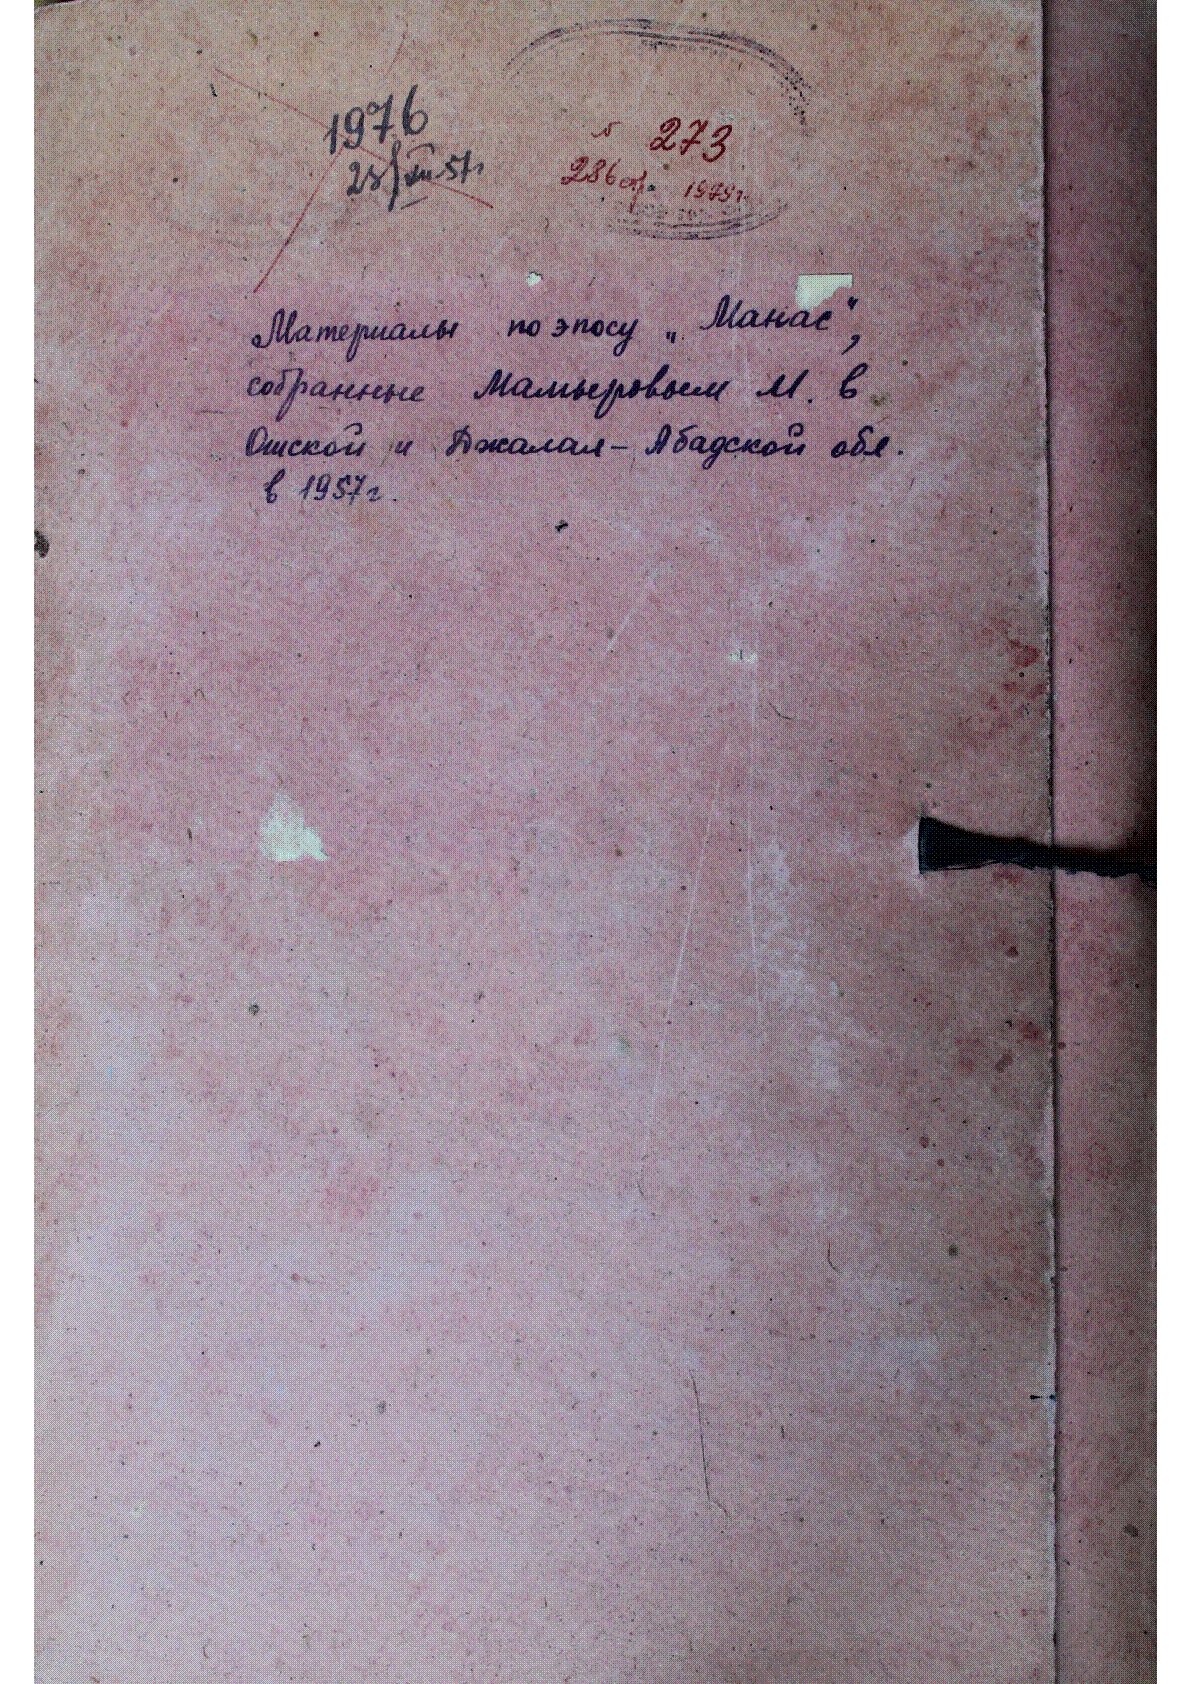 1976
273
286 стр. 1978 г.
Материалы по эпосу „Манас“,
собранные Мамыровым М. в
Ошской и Джалал-Абадской обл.
в 1957 г.